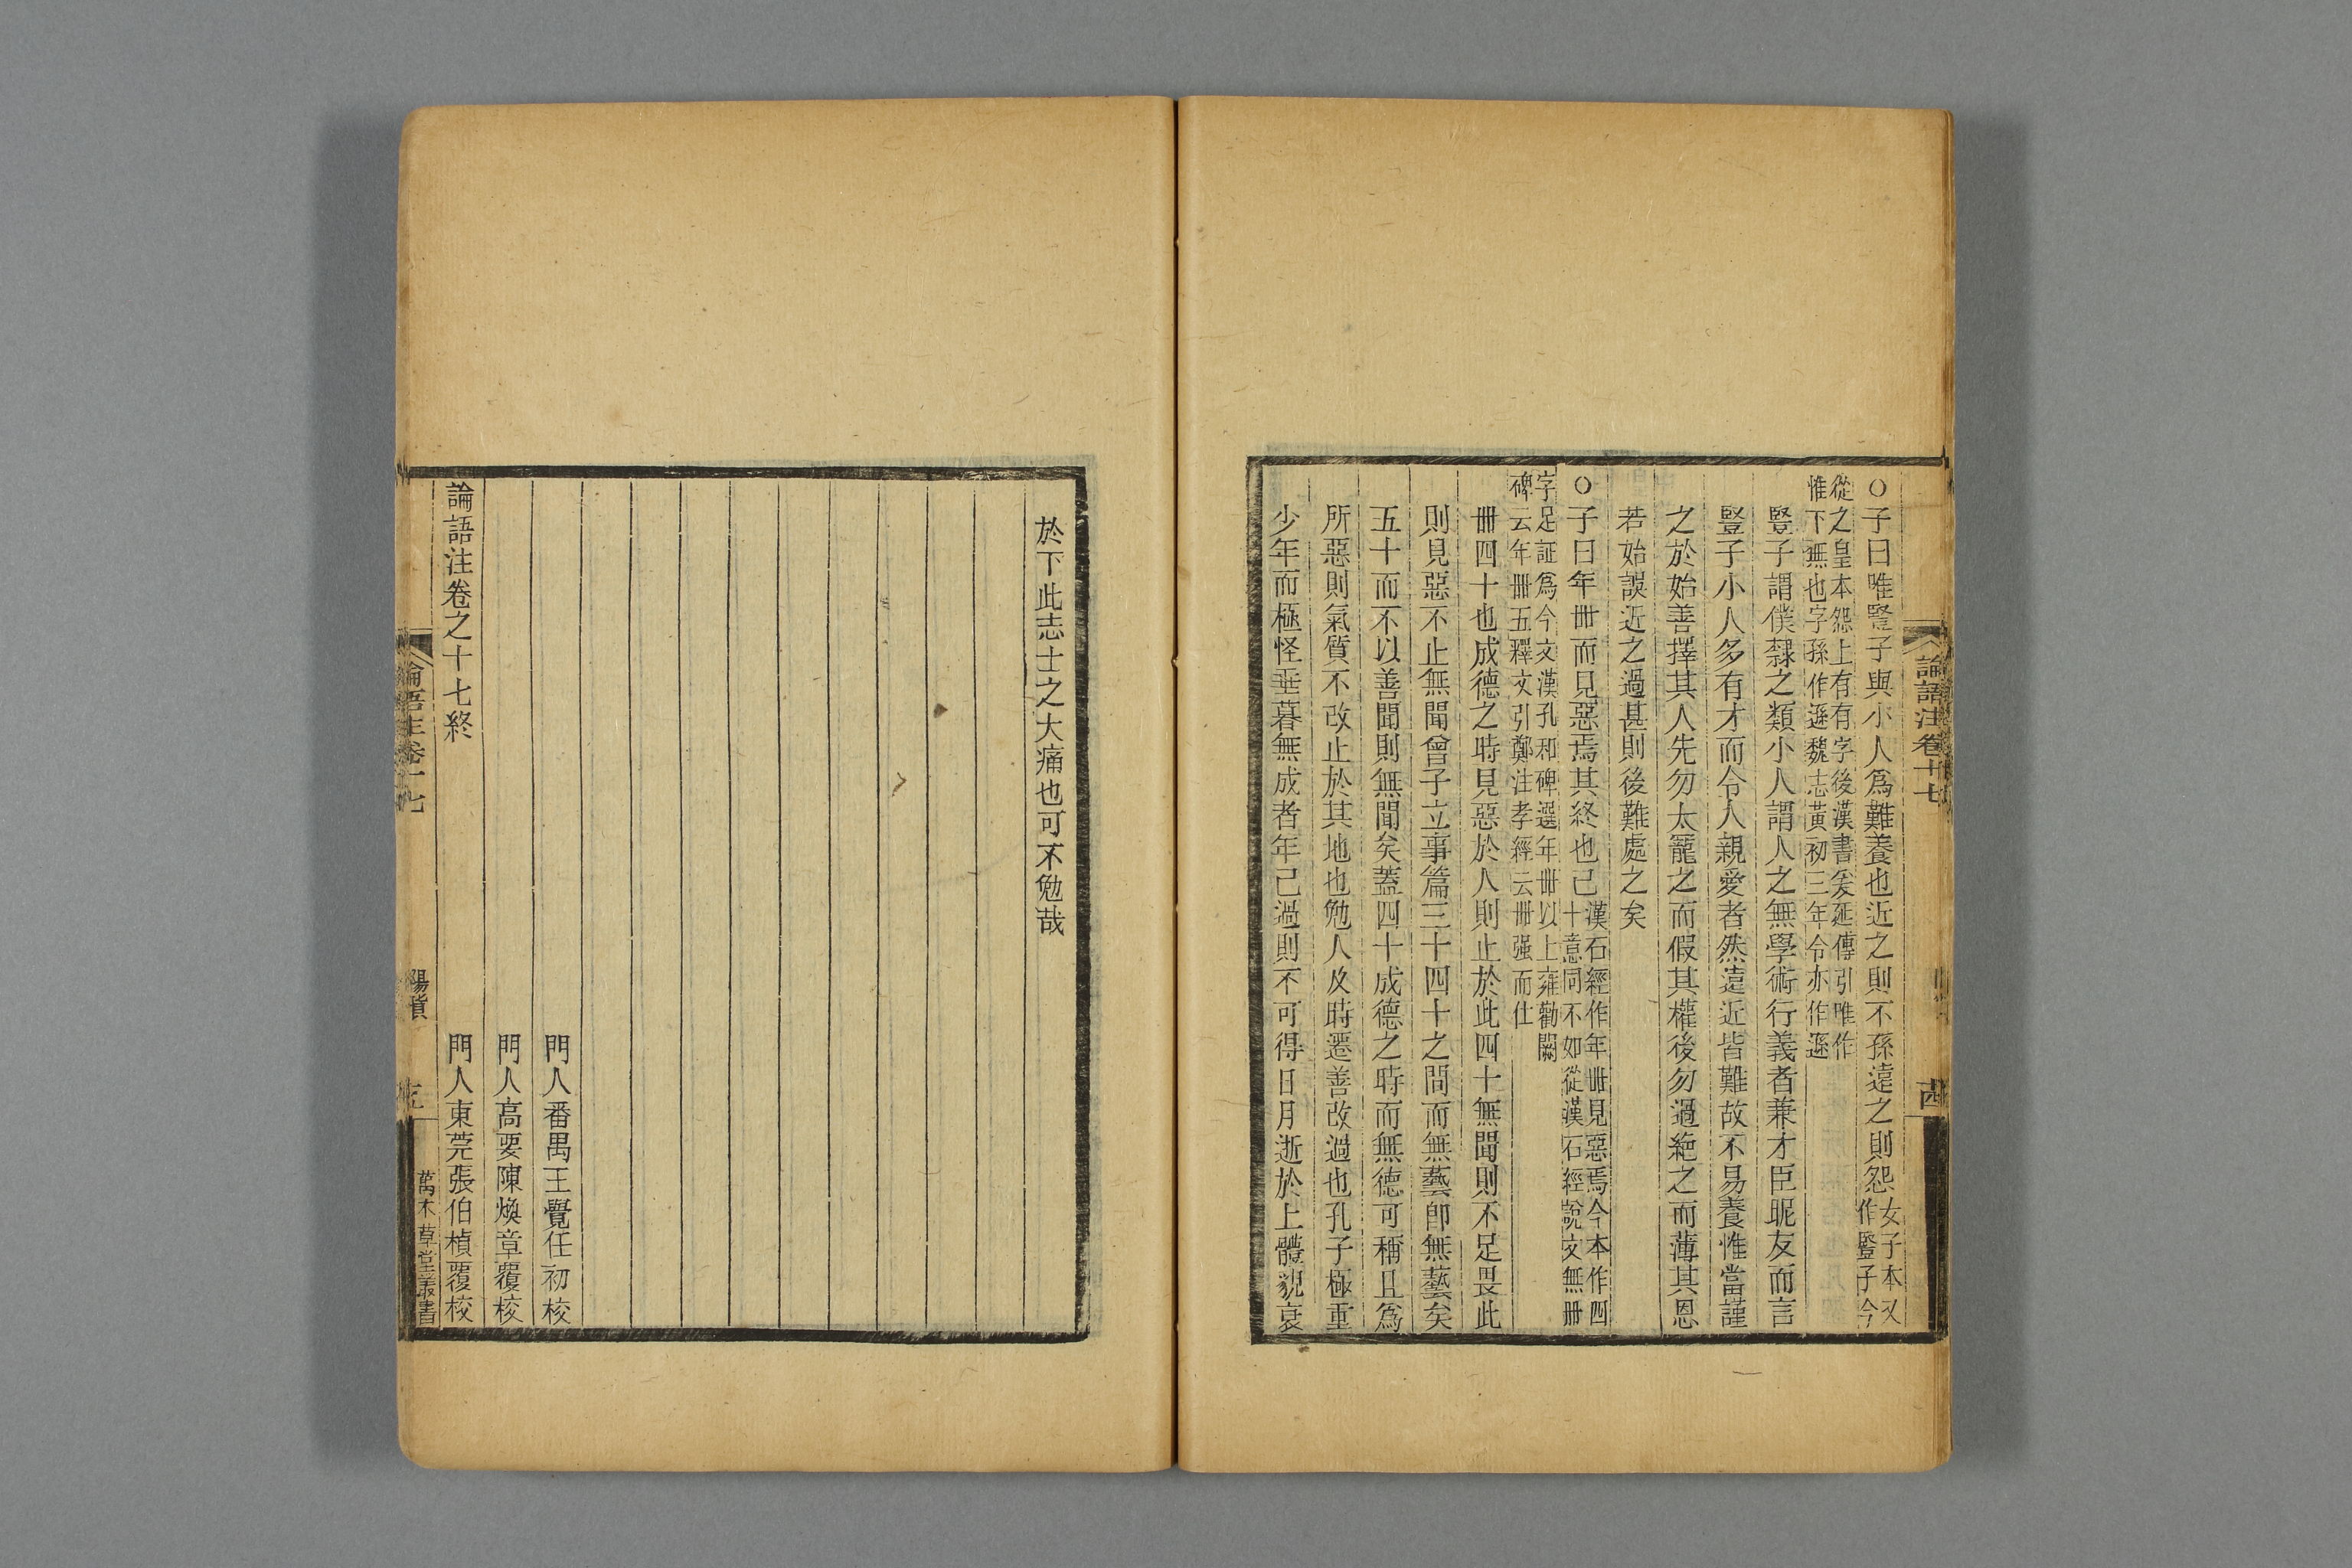 論語注卷十七
○子曰唯豎子與小人爲難養也近之則不孫遠之則怨女子本又
作豎子今
從之皇本怨上有有字後漢書爰延傳引唯作
惟下無也字孫作遜魏志黃初三年令亦作遜
豎子謂僕隸之類小人謂人之無學術行義者兼才臣昵友而言
豎子小人多有才而令人親愛者然遠近皆難故不易養惟當謹
之於始善擇其人先勿太寵之而假其權後勿過絶之而薄其恩
若始誤近之過甚則後難處之矣
○子曰年卌而見惡焉其終也已漢石經作年卌見惡焉今本作四
十意同不如從漢石經說文無卌
字足証爲今文漢孔和碑選年卌以上雍勸闕
碑云年卌五釋文引鄭注孝經云卌强而仕
卌四十也成德之時見惡於人則止於此四十無聞則不足畏此
則見惡不止無聞曾子立事篇三十四十之間而無藝卽無藝矣
五十而不以善聞則無聞矣蓋四十成德之時而無德可稱且爲
所惡則氣質不改止於其地也勉人及時遷善改過也孔子極重
少年而極怪垂暮無成者年已過則不可得日月逝於上體貌衰
於下此志士之大痛也可不勉哉
門人番禺王覺任初校
門人高要陳煥章覆校
論語注卷之十七終
門人東莞張伯楨覆校
論語注卷十七
陽貨
萬木草堂叢書